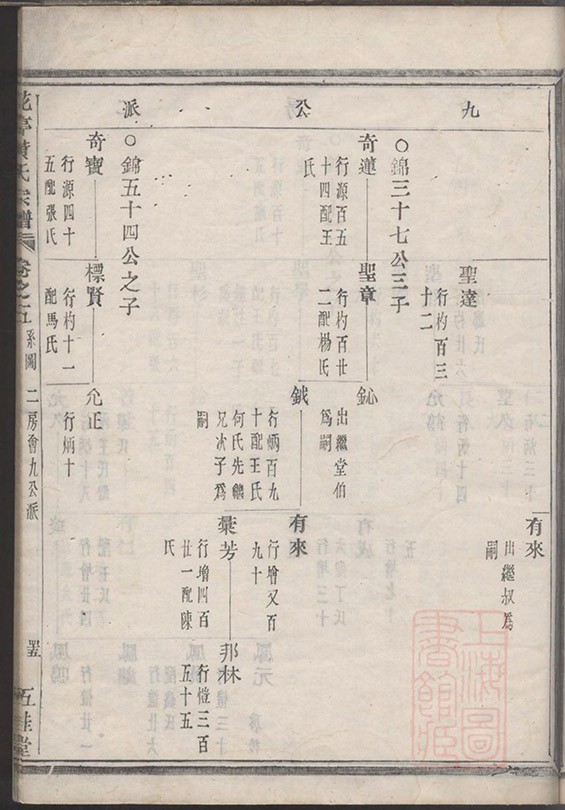 九公派
有來
出繼叔爲
嗣
聖達
行杓百三
十二
○錦三十七公三子
奇蓮
行源百五
十四配王
氏
聖章
行杓百廿
二配楊氏
鈊
出繼堂伯
爲嗣
鉞
行炳百九
十配王氏
何氏先繼
兄次子爲
嗣
有來
行增又百
九十
葉芳
行增四百
廿一配陳
氏
那林
行愷三百
五十五
○錦五十四公之子
奇寶
行源四十
五配張氏
標賢
行杓十一
配馬氏
允正
行炳十
黃氏宗譜
卷之五
系圖
二房會九公派
五桂堂
上海圖書館藏